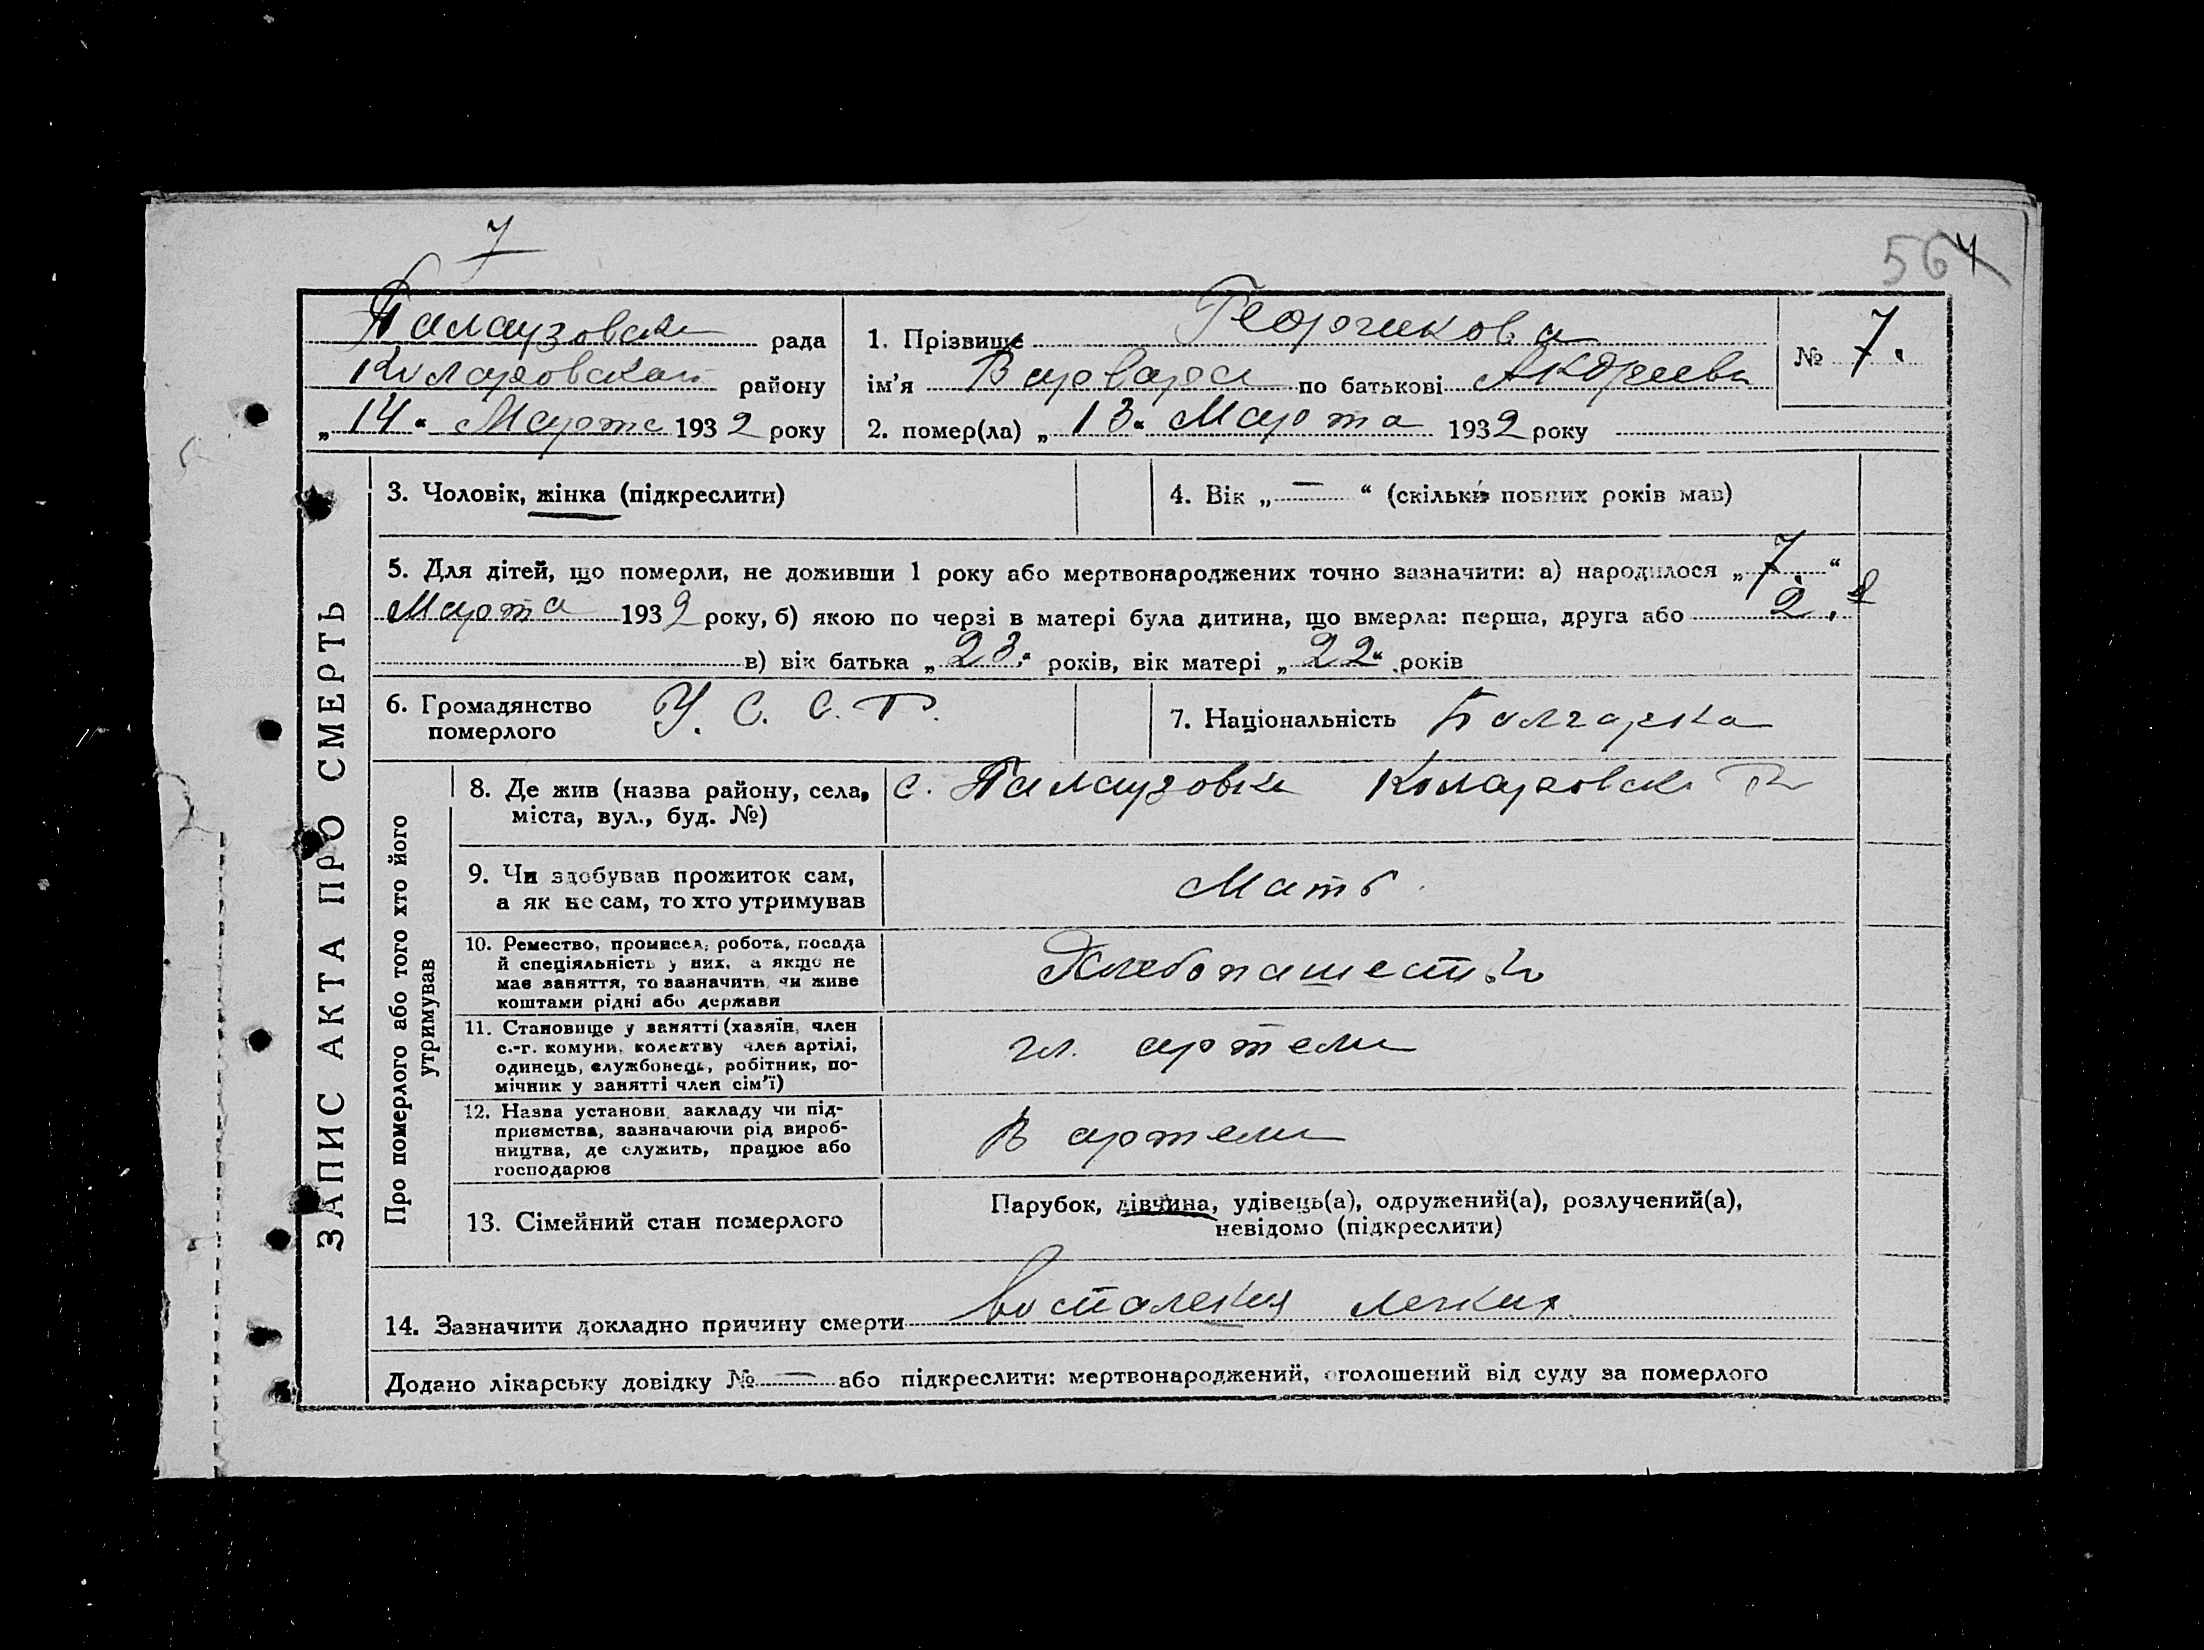 7
564
Палаузовка рада
Коларовский району
„14“ Марта 1932 року
1. Прізвище Георгикова
ім’я Варвара по батькові Андреевн
2. помер(ла) „13“ Марта 1932 року
№ 7.
ЗАПИС АКТА ПРО СМЕРТЬ
3. Чоловік, жінка (підкреслити)
4. Вік „—“ (скільки повних років мав)
5. Для дітей, що померли, не доживши 1 року або мертвонароджених точно зазначити: а) народилося „7.“
Марта 1932 року, б) якою по черзі в матері була дитина, що вмерла: перша, друга або 2.я
в) вік батька „23“ років, вік матері „22“ років
6. Громадянство
померлого
У. С. С. Р.
7. Національність Болгарка
Про померлого або того хто його
утримував
8. Де жив (назва району, села,
міста, вул., буд. №)
с. Палаузовка Коларовск Р
9. Чи здобував прожиток сам,
а як не сам, то хто утримував
Мать
10. Ремество, промисел, робота, посада
й спеціяльність у них, а якщо не
має заняття, то зазначити, чи живе
коштами рідні або держави
Хлебопашеств
11. Становище у занятті (хазяїн, член
с.-г. комуни, колективу член артілі,
одинець, службовець, робітник, по-
мічник у занятті член сім’ї)
чл. артели
12. Назва установи, закладу чи під-
приємства, зазначаючи рід вироб-
ництва, де служить, працює або
господарює
В артели
13. Сімейний стан померлого
Парубок, дівчина, удівець(а), одружений(а), розлучений(а),
невідомо (підкреслити)
14. Зазначити докладно причину смерти Воспаления легких.
Додано лікарську довідку № — або підкреслити: мертвонароджений, оголошений від суду за померлого